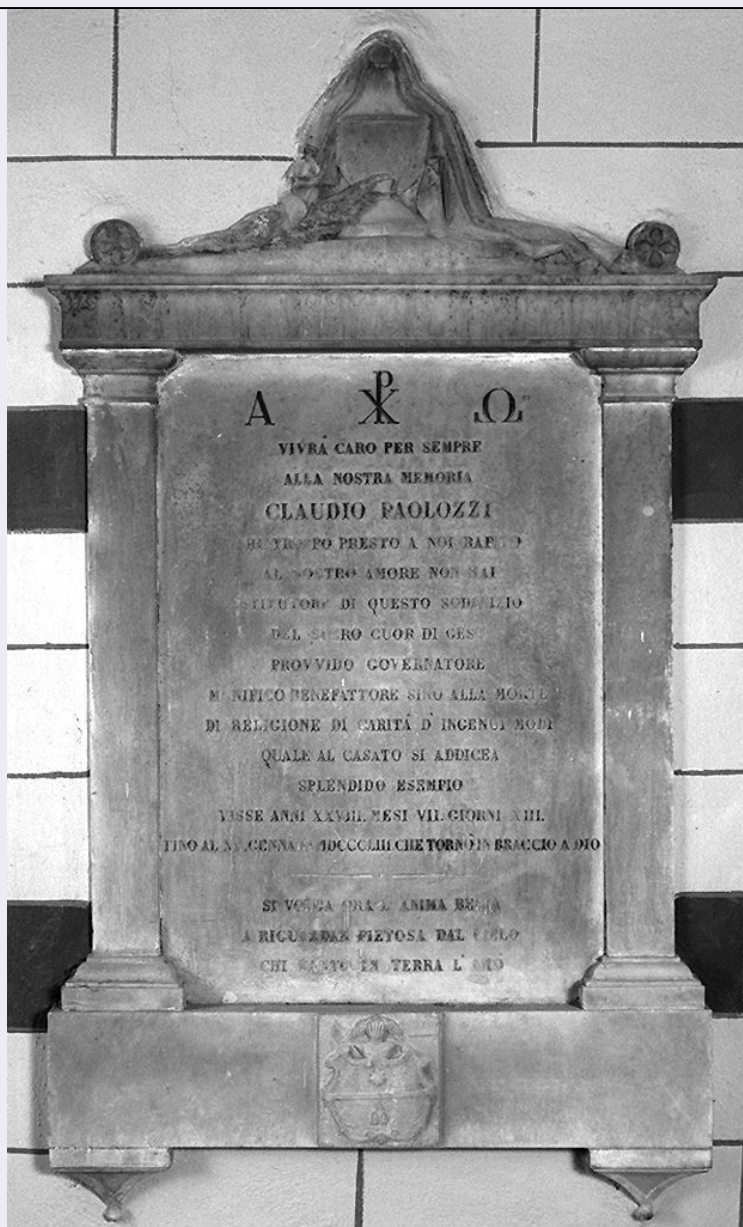 Α ☧ Ω
VIVRÁ CARO PER SEMPRE
ALLA NOSTRA MEMORIA
CLAUDIO PAOLOZZI
PRESTO A NOI
AL NOSTRO AMORE NON MAI
DI QUESTO SODALIZIO
DEL SACRO CUOR DI GESÙ
PROVVIDO GOVERNATORE
MUNIFICO BENEFATTORE SINO ALLA MORTE
DI RELIGIONE DI CARITÁ D' INGENUI MODI
QUALE AL CASATO SI ADDICEA
SPLENDIDO ESEMPIO
VISSE ANNI XXVIII. MESI VII. GIORNI XIII.
AL GENNAIO MDCCCLIII CHE TORNÒ IN BRACCIO A DIO
SI VOLGA ORA L' ANIMA BELLA
A RIGUARDAR PIETOSA DAL CIELO
CHI TANTO IN TERRA L'